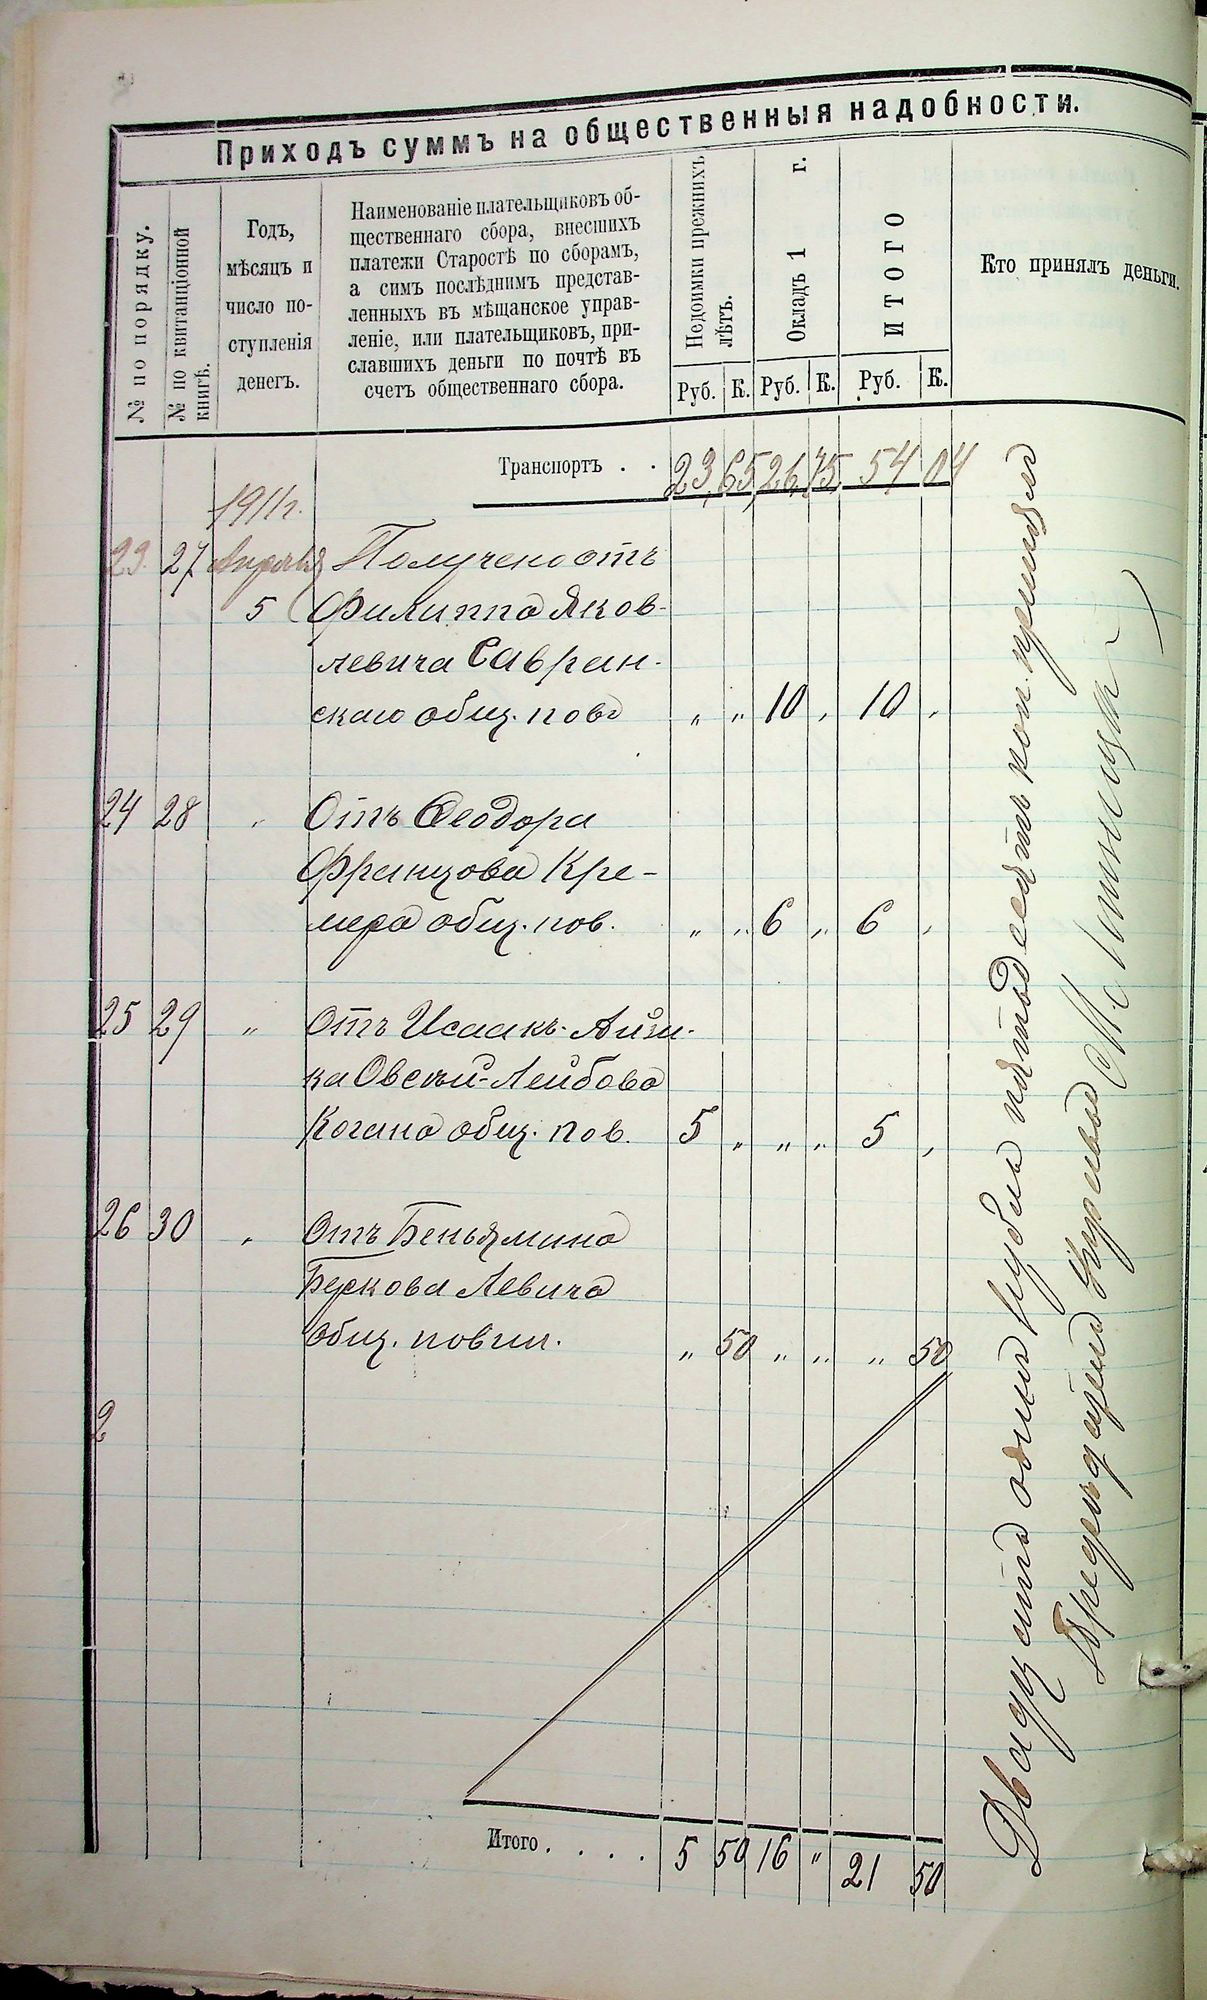 Приходъ суммъ на общественныя надобности.
№ по порядку.
№ по квитанціонной
книгѣ.
Годъ,
мѣсяцъ и
число по-
ступленія
денегъ.
Наименованіе плательщиковъ об-
щественнаго сбора, внесшихъ
платежи Старостѣ по сборамъ,
а симъ послѣднимъ представ-
ленныхъ въ мѣщанское управ-
леніе, или плательщиковъ, при-
славшихъ деньги по почтѣ въ
счетъ общественнаго сбора.
Недоимки прежнихъ
лѣтъ.
Окладъ 1 г.
ИТОГО
Кто принялъ деньги.
Руб. К. Руб. К. Руб. К.
Транспортъ . . 23 65 26 75 54 04
1911 г.
23. 27 Апрѣля Получено отъ
5 Филиппа Яков-
левича Савран-
скаго общ. пов. „ „ 10 „ 10 „
24 28 „ Отъ Ѳеодора
Францова Кре-
мера общ. пов. „ „ 6 „ 6 „
25 29 „ Отъ Исаакъ-Айзи-
ка Овсѣй-Лейбова
Когана общ. пов. 5 „ „ „ 5 „
26 30 „ Отъ Беньямина
Беркова Левича
общ. повин. „ 50 „ „ „ 50
2
Итого . . . . 5 50 16 „ 21 50
Двадцать одинъ рубль пятьдесятъ коп. принялъ